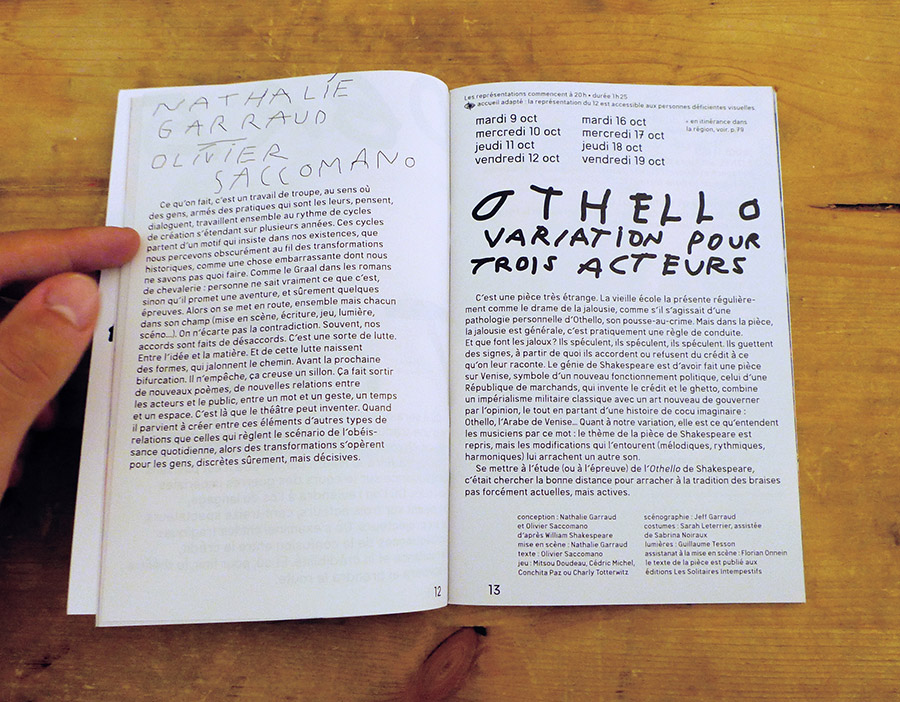 NATHALIE
GARRAUD
OLIVIER
SACCOMANO
Ce qu'on fait, c'est un travail de troupe, au sens où
des gens, armés des pratiques qui sont les leurs, pensent,
dialoguent, travaillent ensemble au rythme de cycles
de création s'étendant sur plusieurs années. Ces cycles
partent d'un motif qui insiste dans nos existences, que
nous percevons obscurément au fil des transformations
historiques, comme une chose embarrassante dont nous
ne savons pas quoi faire. Comme le Graal dans les romans
de chevalerie : personne ne sait vraiment ce que c'est,
sinon qu'il promet une aventure, et sûrement quelques
épreuves. Alors on se met en route, ensemble mais chacun
dans son champ (mise en scène, écriture, jeu, lumière,
scéno…). On n'écarte pas la contradiction. Souvent, nos
accords sont faits de désaccords. C'est une sorte de lutte.
Entre l'idée et la matière. Et de cette lutte naissent
des formes, qui jalonnent le chemin. Avant la prochaine
bifurcation. Il n'empêche, ça creuse un sillon. Ça fait sortir
de nouveaux poèmes, de nouvelles relations entre
les acteurs et le public, entre un mot et un geste, un temps
et un espace. C'est là que le théâtre peut inventer. Quand
il parvient à créer entre ces éléments d'autres types de
relations que celles qui règlent le scénario de l'obéis-
sance quotidienne, alors des transformations s'opèrent
pour les gens, discrètes sûrement, mais décisives.
12
Les représentations commencent à 20h • durée 1h25
accueil adapté : la représentation du 12 est accessible aux personnes déficientes visuelles.
mardi 9 oct
mercredi 10 oct
jeudi 11 oct
vendredi 12 oct
mardi 16 oct
mercredi 17 oct
jeudi 18 oct
vendredi 19 oct
+ en itinérance dans
la région, voir. p.79
OTHELLO
VARIATION POUR
TROIS ACTEURS
C'est une pièce très étrange. La vieille école la présente régulière-
ment comme le drame de la jalousie, comme s'il s'agissait d'une
pathologie personnelle d'Othello, son pousse-au-crime. Mais dans la pièce,
la jalousie est générale, c'est pratiquement une règle de conduite.
Et que font les jaloux ? Ils spéculent, ils spéculent, ils spéculent. Ils guettent
des signes, à partir de quoi ils accordent ou refusent du crédit à ce
qu'on leur raconte. Le génie de Shakespeare est d'avoir fait une pièce
sur Venise, symbole d'un nouveau fonctionnement politique, celui d'une
République de marchands, qui invente le crédit et le ghetto, combine
un impérialisme militaire classique avec un art nouveau de gouverner
par l'opinion, le tout en partant d'une histoire de cocu imaginaire :
Othello, l'Arabe de Venise… Quant à notre variation, elle est ce qu'entendent
les musiciens par ce mot : le thème de la pièce de Shakespeare est
repris, mais les modifications qui l'entourent (mélodiques, rythmiques,
harmoniques) lui arrachent un autre son.
Se mettre à l'étude (ou à l'épreuve) de l'Othello de Shakespeare,
c'était chercher la bonne distance pour arracher à la tradition des braises
pas forcément actuelles, mais actives.
conception : Nathalie Garraud
et Olivier Saccomano
d'après William Shakespeare
mise en scène : Nathalie Garraud
texte : Olivier Saccomano
jeu : Mitsou Doudeau, Cédric Michel,
Conchita Paz ou Charly Totterwitz
scénographie : Jeff Garraud
costumes : Sarah Leterrier, assistée
de Sabrina Noiraux
lumières : Guillaume Tesson
assistanat à la mise en scène : Florian Onnein
le texte de la pièce est publié aux
éditions Les Solitaires Intempestifs
13